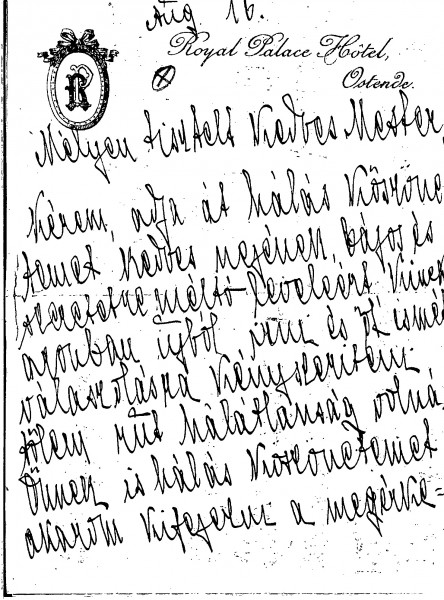 Aug 16.
Royal Palace Hôtel,
Ostende.
R
Mélyen tisztelt Kedves Mester,
Kérem, adja át hálás köszöne
temet kedves nejének, bájos és
szeretetreméltó leveleért
azonban újból írni és Őt ismét
válaszolásra kényszeríteni
tőlem rút hálátlanság volna
Önnek is hálás köszönetemet
akarom kifejezni a megérke=